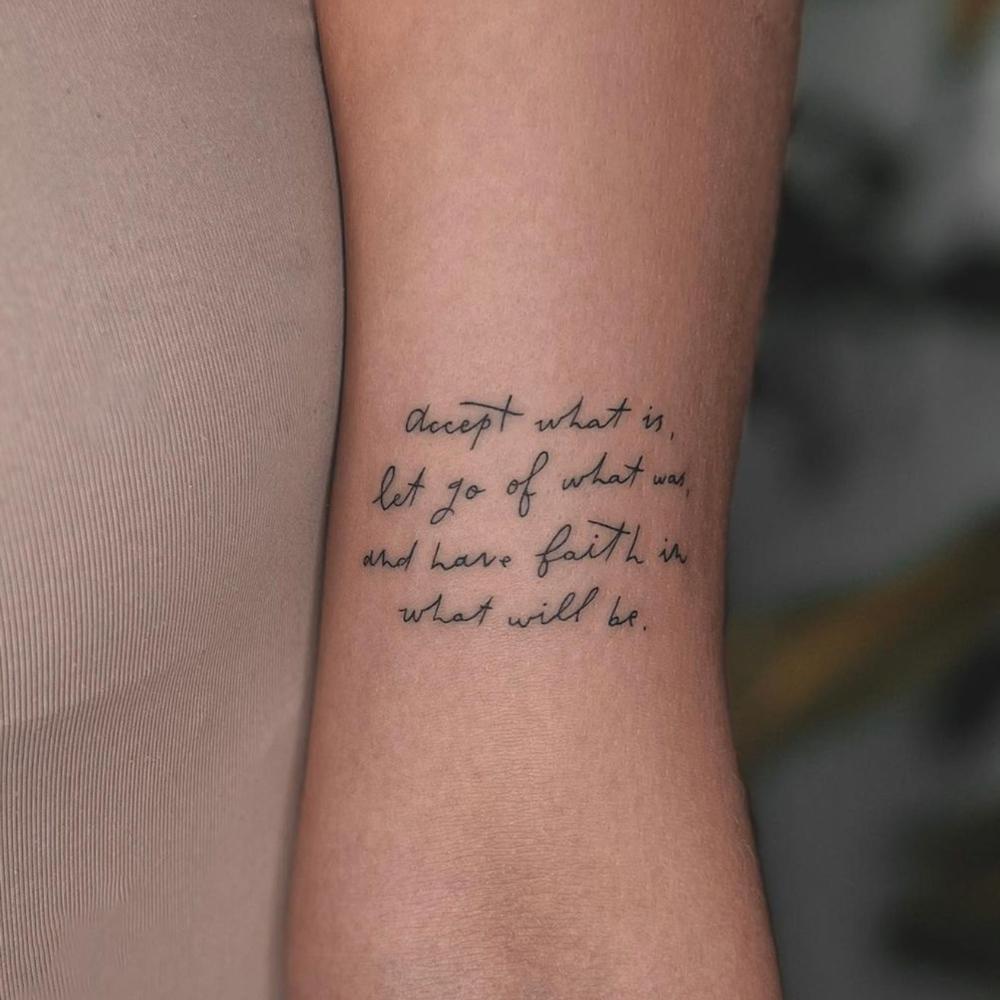 accept what is,
let go of what was,
and have faith in
what will be.